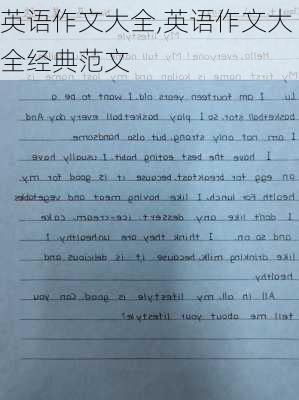 英语作文大全,英语作文大
全经典范文
My lifestyle
Hello, everyone!
My first name is kailan and my last name is
Lu. I am fourteen years old. I want to be a
basketball star, so I play basketball every day. And
I am not only strong, but also handsome.
I have the best eating habit. I usually have
an egg for breakfast, because it is good for my
health. For lunch, I like having meat and vegetables.
I don't like any dessert: ice-cream, cake
and so on. I think they are unhealthy. I
like drinking milk, because it is delicious and
healthy.
All in all, my lifestyle is good. Can you
tell me about your lifestyle?